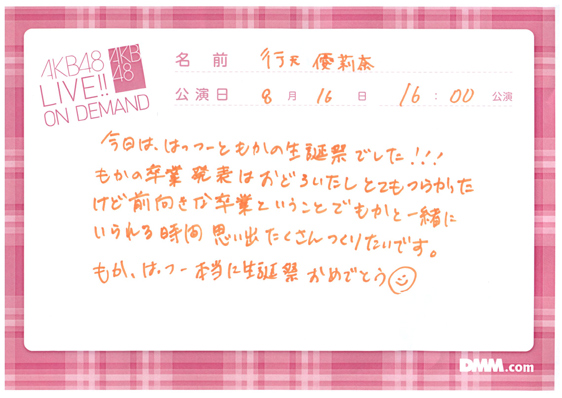 AKB48
LIVE!!
ON DEMAND
AKB
48
名前 行天優莉奈
公演日 8月16日 16:00 公演
今日は、はっつーともかの生誕祭でした!!!
もかの卒業発表はおどろいたしとてもつらかった
けど前向きな卒業ということでもかと一緒に
いられる時間思い出たくさんつくりたいです。
もか、はっつー本当に生誕祭おめでとう
DMM.com